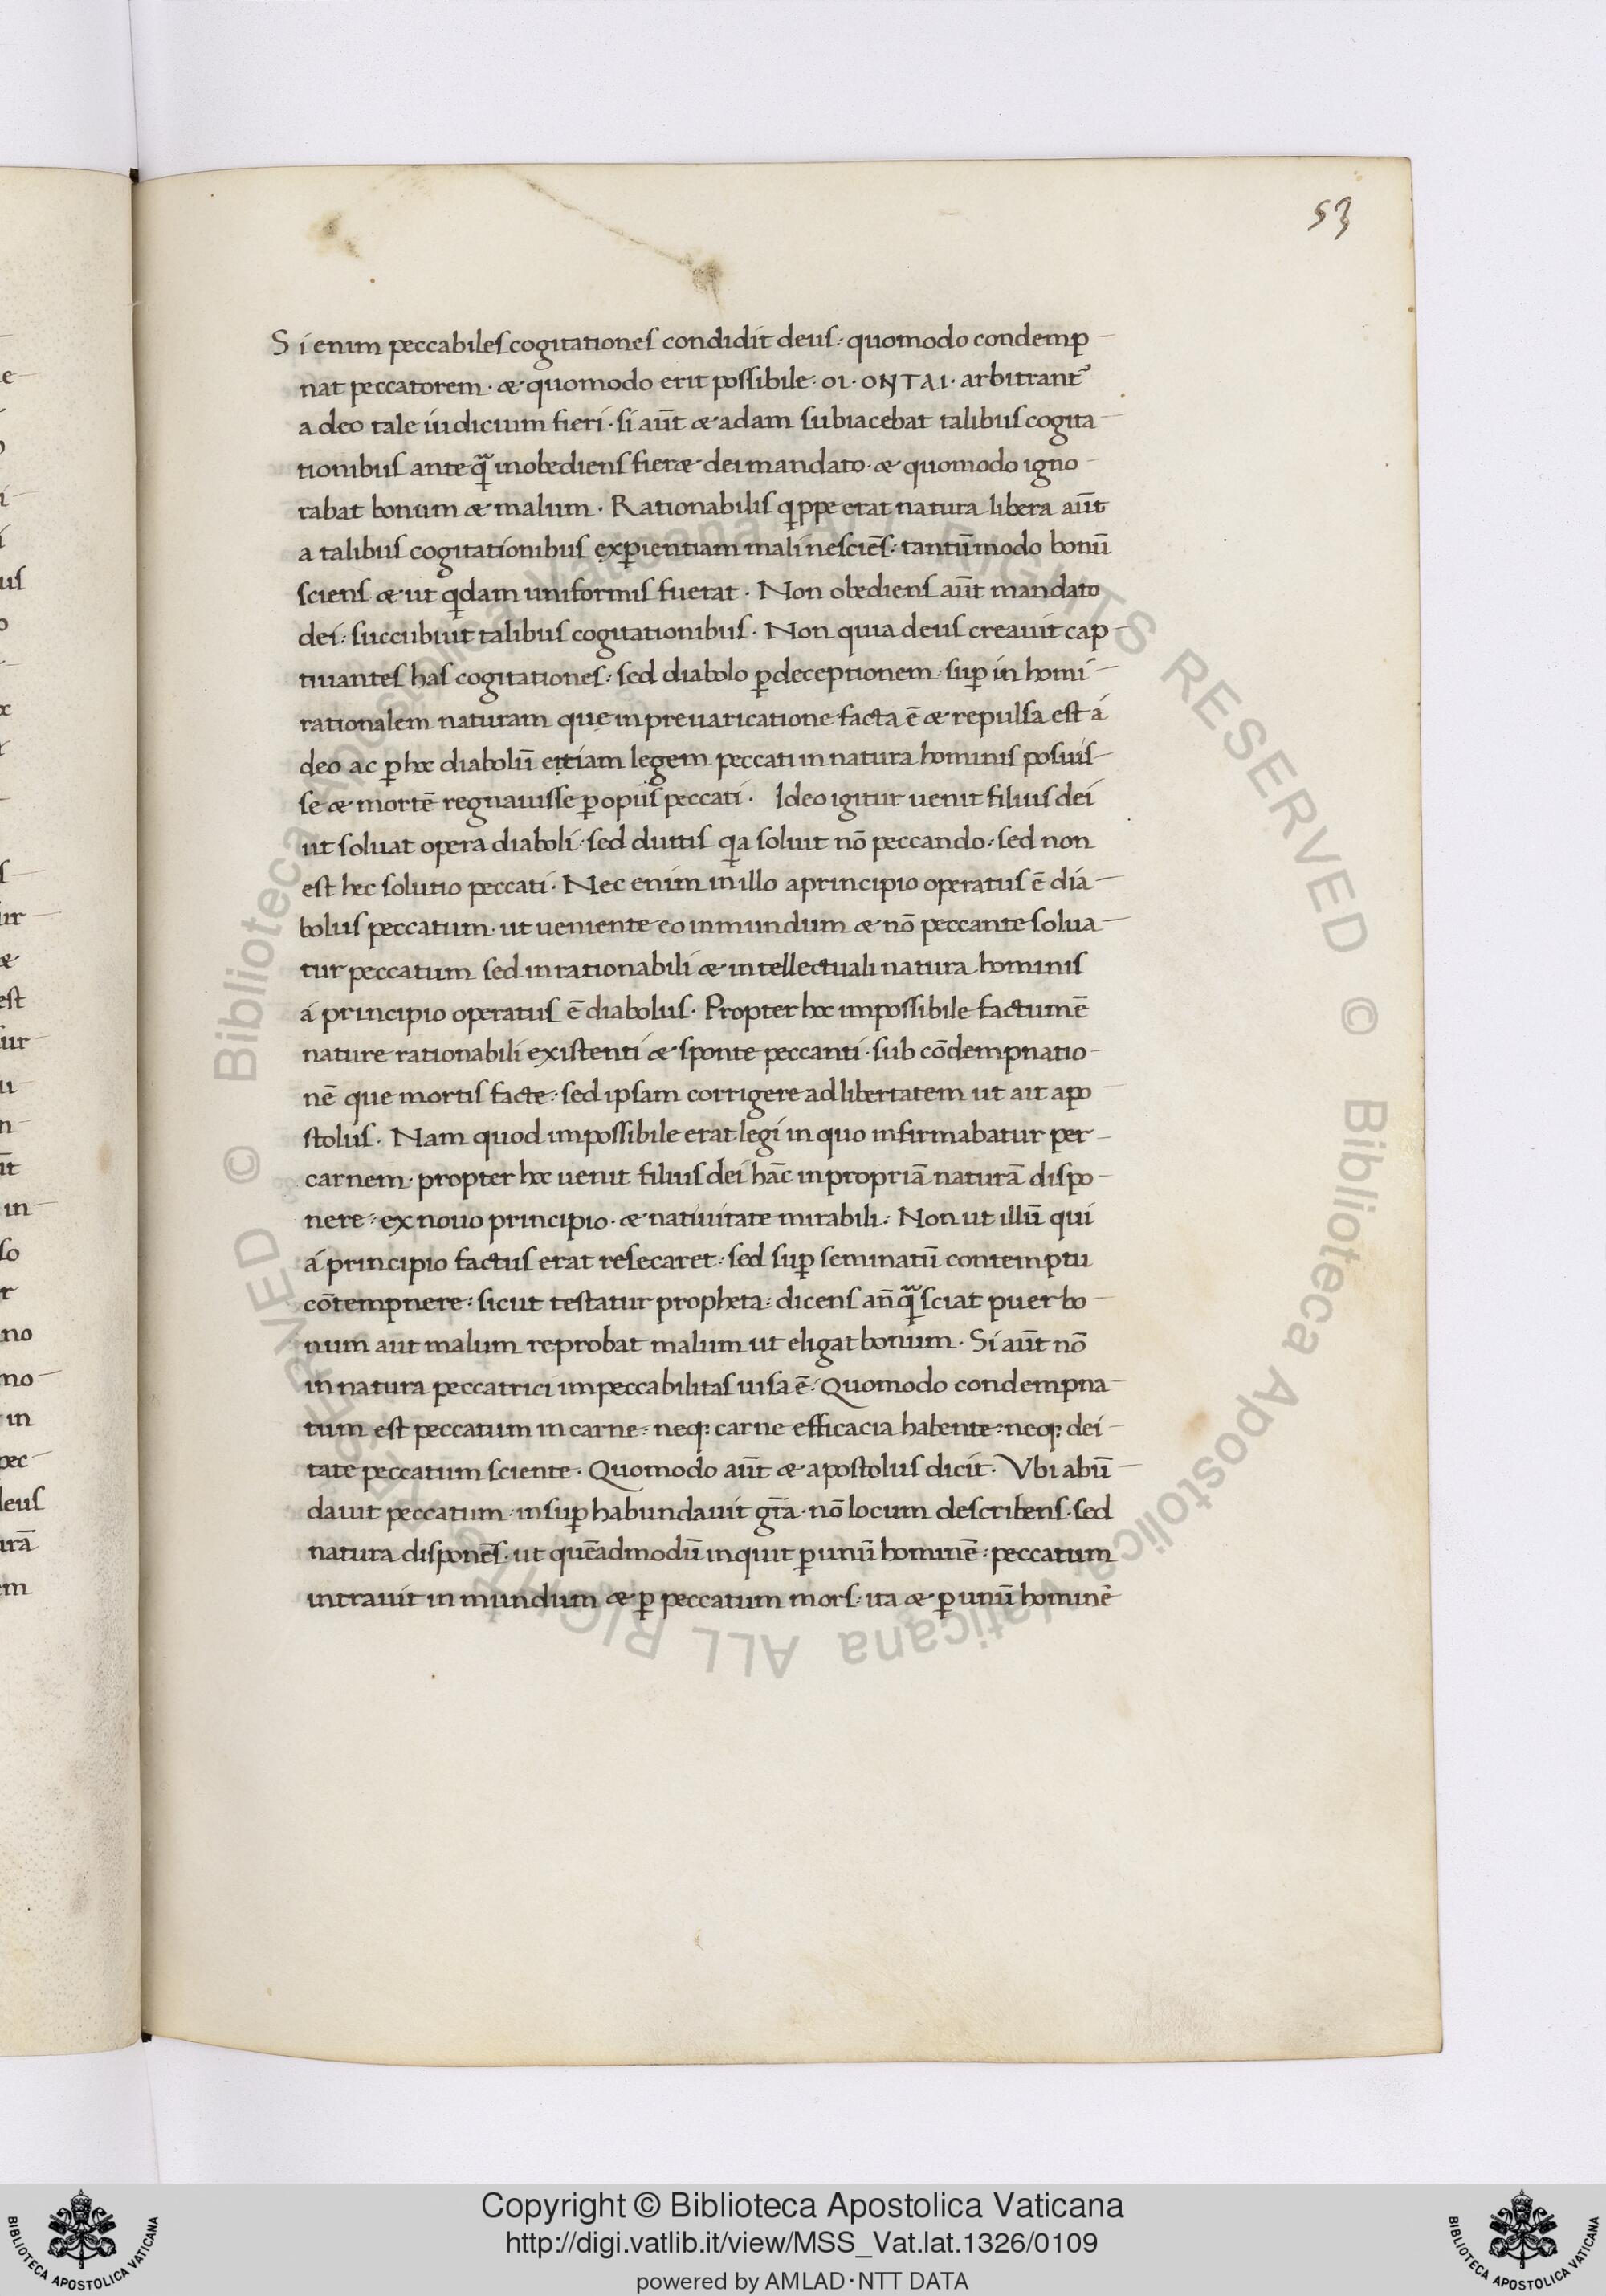 53
Si enim peccabiles cogitationes condidit deus: quomodo condemp
nat peccatorem · & quomodo erit possibile: OI· ONTAI· arbitrant᷒
a deo tale iudicium fieri · si aūt & adam subiacebat talibus cogita
tionibus anteqᷓ inobediens fier& dei mandato · & quomodo igno
rabat bonum & malum · Rationabilis qippe erat natura libera aūt
a talibus cogitationibus exꝑientiam mali nesciēs: tantūmodo bonū
sciens & ut qidam uniformis fuerat · Non obediens aūt mandato
dei: succubuit talibus cogitationibus · Non quia deus creauit cap
tiuantes has cogitationes: sed diabolo ꝑ deceptionem · suꝑ in homi
rationalem naturam que in preuaricatione facta ē & repulsa est á
deo ac ꝑ hoc diabolū etiam legem peccati in natura hominis posuis
se & mortē regnauisse ꝑ opus peccati · Ideo igitur uenit filius dei
ut soluat opera diaboli · sed dicitis qia soluit nō peccando: sed non
est hec solutio peccati · Nec enim in illo a principio operatus ē dia
bolus peccatum · ut ueniente eo in mundum & nō peccante solua
tur peccatum sed in rationabili & intellectuali natura hominis
á principio operatus ē diabolus · Propter hoc impossibile factum ē
nature rationabili existenti & sponte peccanti · sub cōdempnatio
nē que mortis facte: sed ipsam corrigere ad libertatem ut ait apo
stolus · Nam quod impossibile erat legi in quo infirmabatur per
carnem · propter hoc uenit filius dei hāc in propriā naturā dispo
nere: ex nouo principio · & natiuitate mirabili: Non ut illū qui
á principio factus erat resecaret: sed suꝑ seminatū contemptu
cōtempnere: sicut testatur propheta: dicens an̄qᷓ sciat puer bo
num aut malum reprobat malum ut eligat bonum · Si aūt nō
in natura peccatrici impeccabilitas uisa ē: Quomodo condempna
tum est peccatum in carne: neq; carne efficacia habente: neq; dei
tate peccatum sciente · Quomodo aūt & apostolus dicit · Vbi abū
dauit peccatum · insuꝑ habundauit gr̄a · nō locum describens · sed
natura disponēs · ut quēadmodū inquit ꝑ unū hominē: peccatum
intrauit in mundum & ꝑ peccatum mors · ita & ꝑ unū hominē
Copyright © Biblioteca Apostolica Vaticana
http://digi.vatlib.it/view/MSS_Vat.lat.1326/0109
powered by AMLAD·NTT DATA